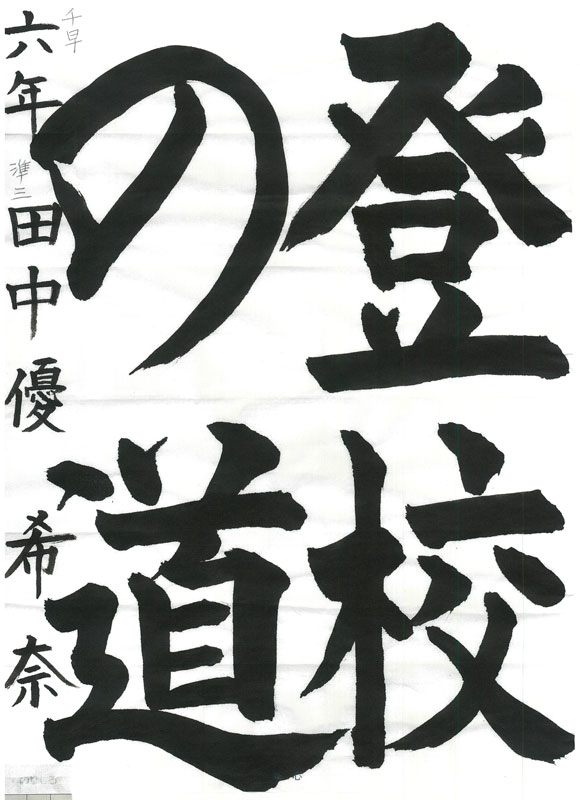 登校
の道
六年田中優希奈
千早
準三